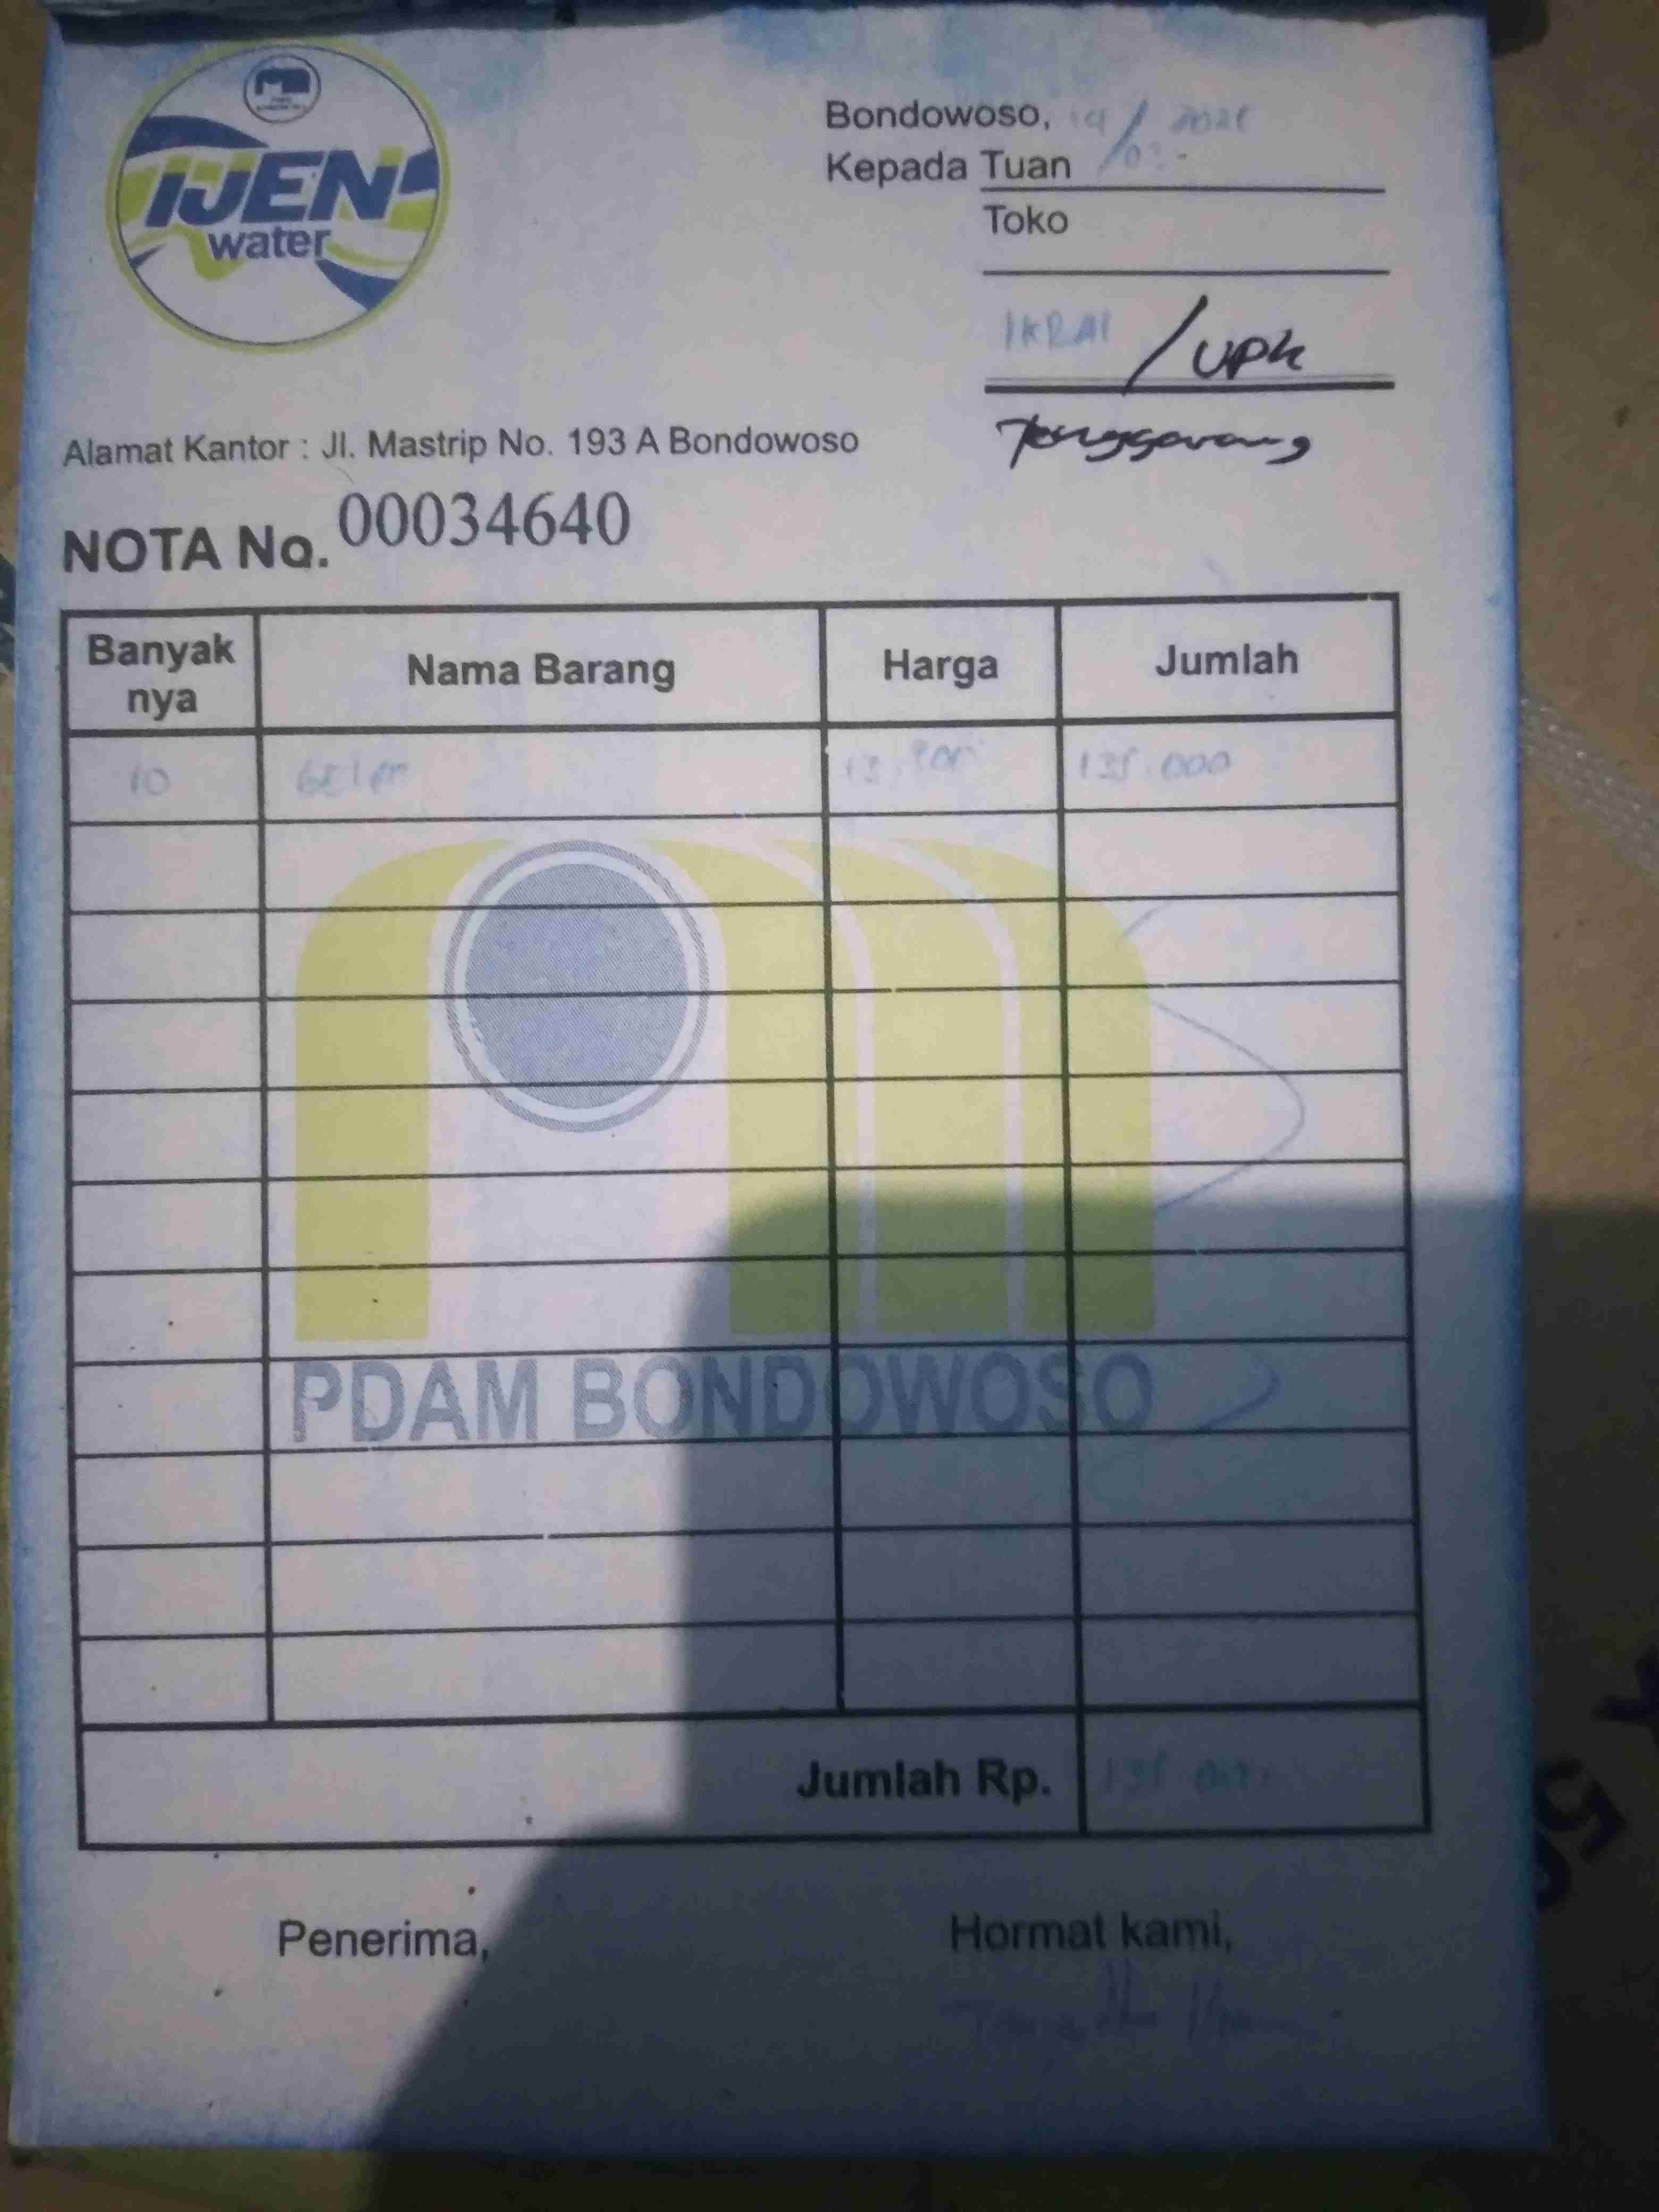 IJEN
water
Bondowoso, 19/03- 2021
Kepada Tuan
Toko
IKRAI / UPK
Tenggarang
Alamat Kantor : Jl. Mastrip No. 193 A Bondowoso
NOTA No. 00034640
Banyak nya Nama Barang Harga Jumlah
10 13.500 135.000
PDAM BONDOWOSO
Jumlah Rp. 135.000
Penerima, Hormat kami,